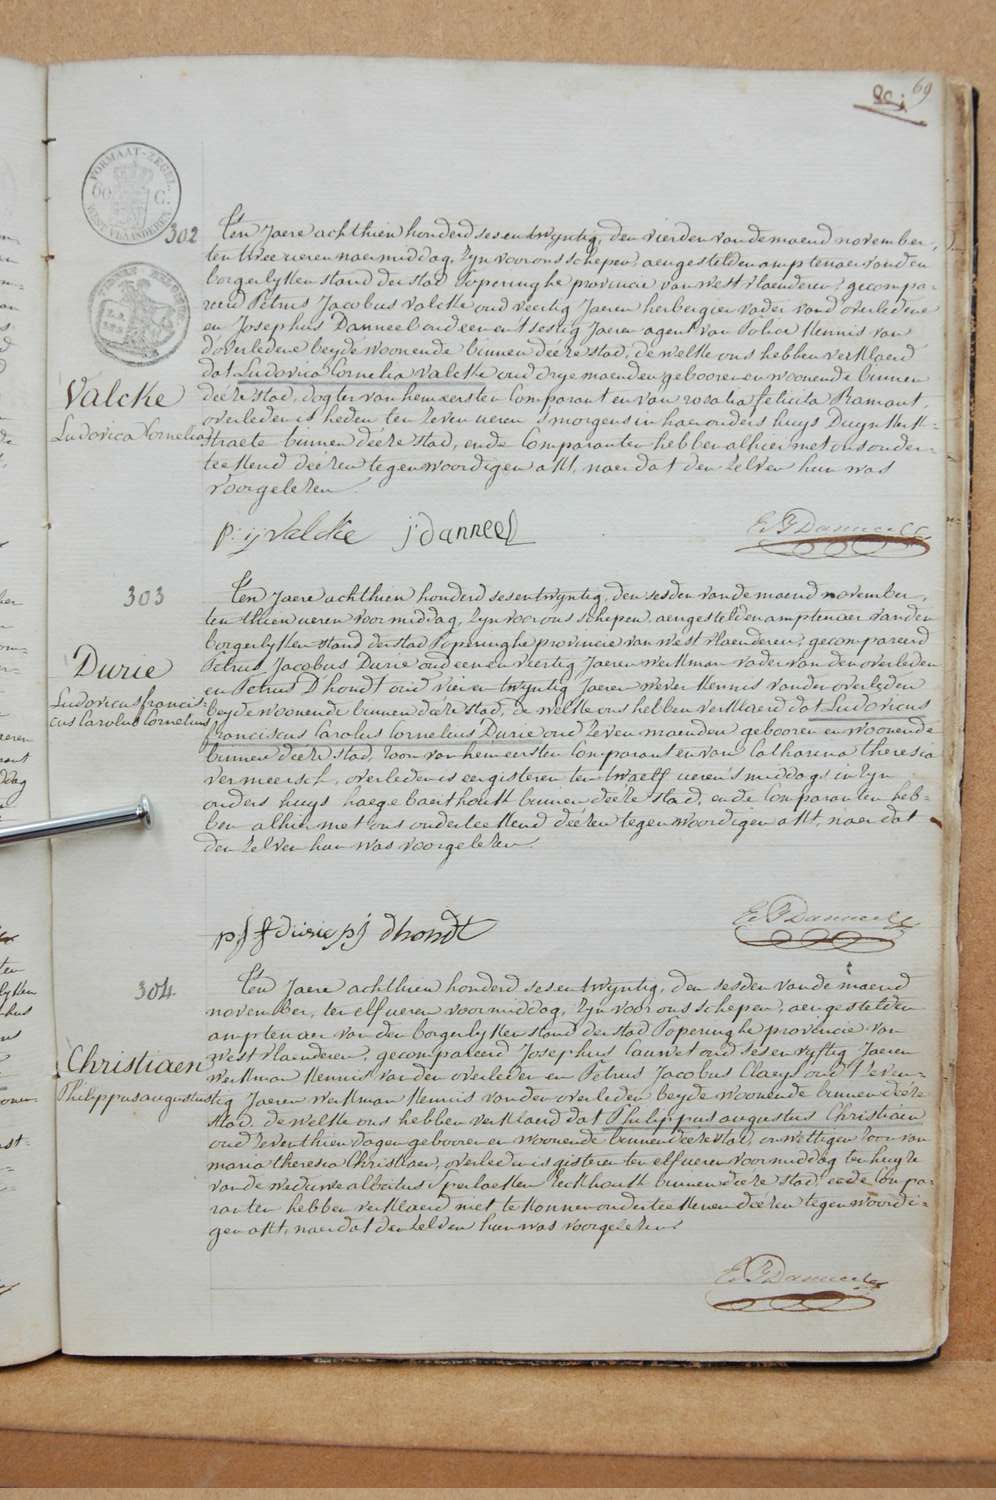 69
FORMAAT-ZEGEL
WEST VLAANDEREN
302
Ten Jaere achthien honderd sesentwyntig, den vierden van de maend november,
ten twee ueren naermiddag, Zyn voor ons schepen, aengestelden amptenaer van den
borgerlyken stand der stad Poperinghe provincie van west vlaenderen, gecompa-
reerd Petrus Jacobus Valcke oud veertig Jaeren herbergier vader vand'overledene
en Josephus Danneel oud een en t'sestig Jaeren agent van Police kennis van
d'overledene beyde woonende binnen deéze stad, de welke ons hebben verklaerd
dat Ludovica Cornelia Valcke oud drye maenden geboren en woonende binnen
deéze stad, dogter van hem eersten Comparant en van rosalia felicita Ramaut,
overleden is heden ten zeven ueren s'morgens in haer ouders huys Duynkerk-
straete binnen deéze stad, ende Comparanten hebben alhier met ons onder-
teekend deézen tegenwoordigen akt, naer dat den zelven hun was
voorgelezen.
Valcke
Ludovica Cornelia
p: ij Valcke j danneel
303
Ten Jaere achthien honderd sesentwyntig, den sesden van de maend november,
ten thien ueren voormiddag, Zyn voor ons schepen, aengestelden amptenaer van den
borgerlyken stand der stad Poperinghe provincie van west vlaenderen, gecompareerd
Petrus Jacobus Durie oud een en veertig Jaeren werkman vader van den overleden
en Petrus D'hondt oud vier en twyntig Jaeren wever kennis van den overleden
beyde woonende binnen deéze stad, de welke ons hebben verklaerd dat Ludovicus
franciscus Carolus Cornelius Durie oud zeven maenden geboren en woonende
binnen deéze stad, zoon van hem eersten Comparant en van Catharina theresia
vermeersch, overleden is eergisteren ten twaelf ueren s'middags in zyn
ouders huys haege baerthoutk binnen deéze stad, ende Comparanten heb-
ben alhier met ons onderteekend deézen tegenwoordigen akt, naer dat
den zelven hun was voorgelezen.
Durie
Ludovicus francis-
cus Carolus Cornelius
durie pj dhondt
304
Ten Jaere achthien honderd sesentwyntig, den sesden van de maend
november, ten elf ueren voormiddag, Zyn voor ons schepen, aengestelden
amptenaer van den borgerlyken stand der stad Poperinghe provincie van
west vlaenderen, gecompareerd Josephus Cauwet oud ses en vyftig Jaeren
werkman kennis van den overleden en Petrus Jacobus Claeys oud t'seven-
tig Jaeren werkman kennis van den overleden beyde woonende binnen deéze
stad, de welke ons hebben verklaerd dat Philippus augustus Christiaen
oud zeventhien dagen geboren en woonende binnen deéze stad, onwettigen zoon van
maria theresia Christiaen, overleden is gisteren ten elf ueren voormiddag ten huyze
van de weduwe albertus Sperlaeken Eeckhoutk binnen deéze stad, ende Compa-
ranten hebben verklaerd niet te konnen onderteekenen deézen tegenwoordi-
gen akt, naer dat den zelven hun was voorgelezen.
Christiaen
Philippus augustus